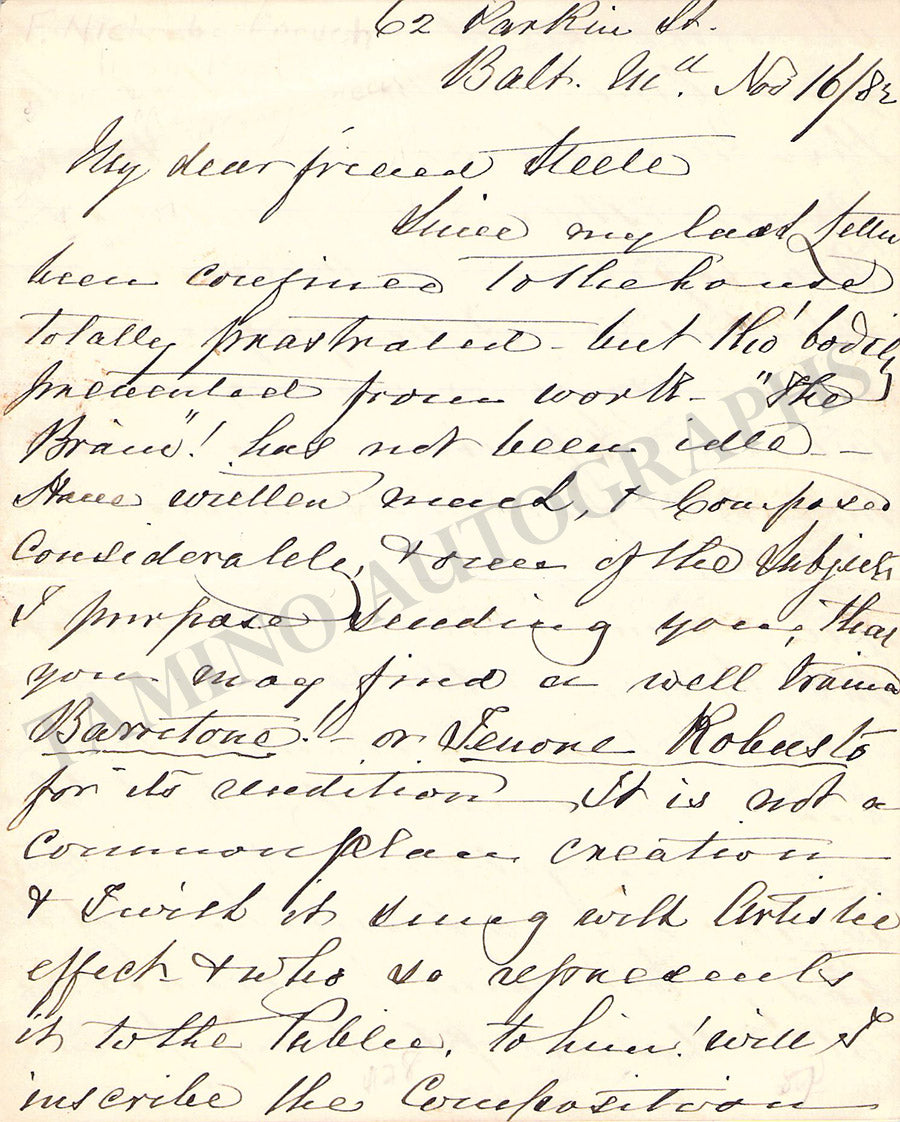 62 Parkin St.
Balt. Md. Nov 16/82
My dear friend Steele
Since my last letter
been confined to the house
totally prostrated - but tho' bodily
prevented from work - "The
Brain"! has not been idle --
Have written much, & Composed
Considerably, & one of the Subjects
I purpose sending you, that
you may find a well trained
Barritone! - or Tenore Robusto
for its rendition It is not a
commonplace creation
& I wish it sung with Artistic
effect & who so represents
it to the Public, to him! will I
inscribe the Composition
TAMINO AUTOGRAPHS